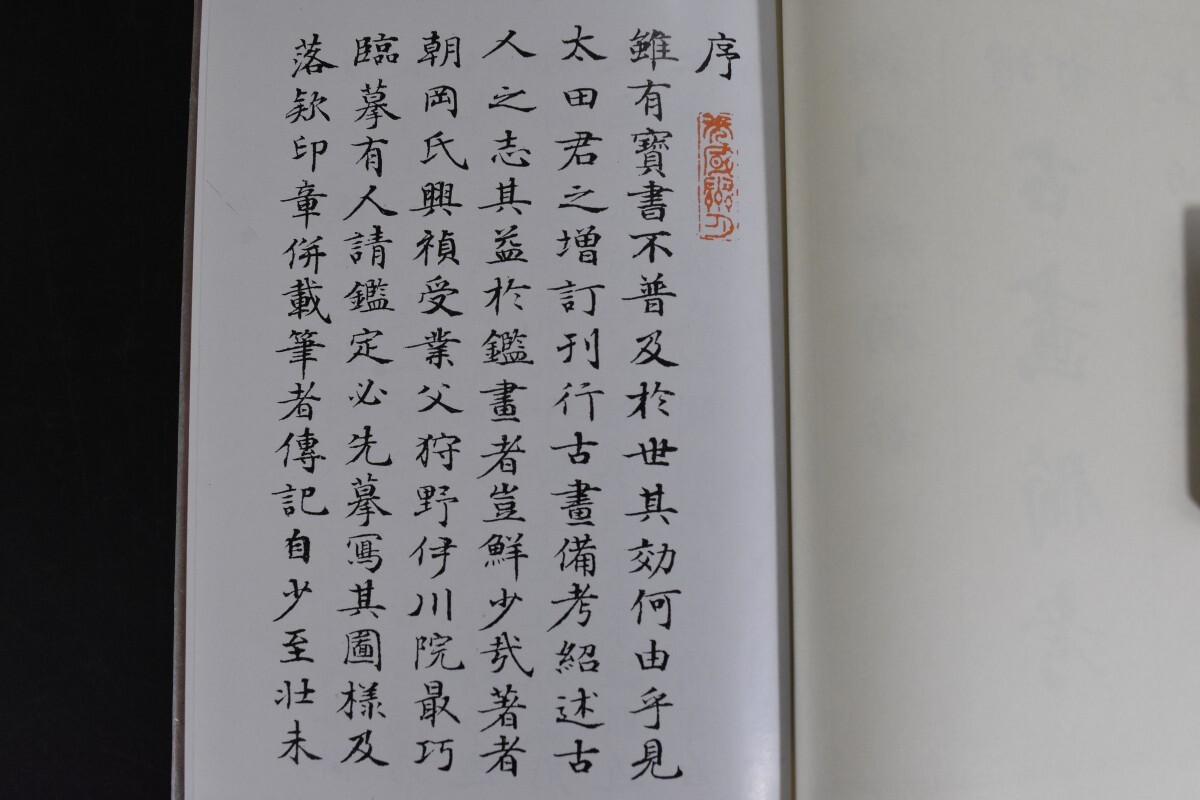 序
雖有寶書不普及於世其効何由乎見
太田君之増訂刊行古畫備考紹述古
人之志其益於鑑畫者豈鮮少哉著者
朝岡氏興禎受業父狩野伊川院最巧
臨摹有人請鑑定必先摹寫其圖樣及
落款印章併載筆者傳記自少至壯未